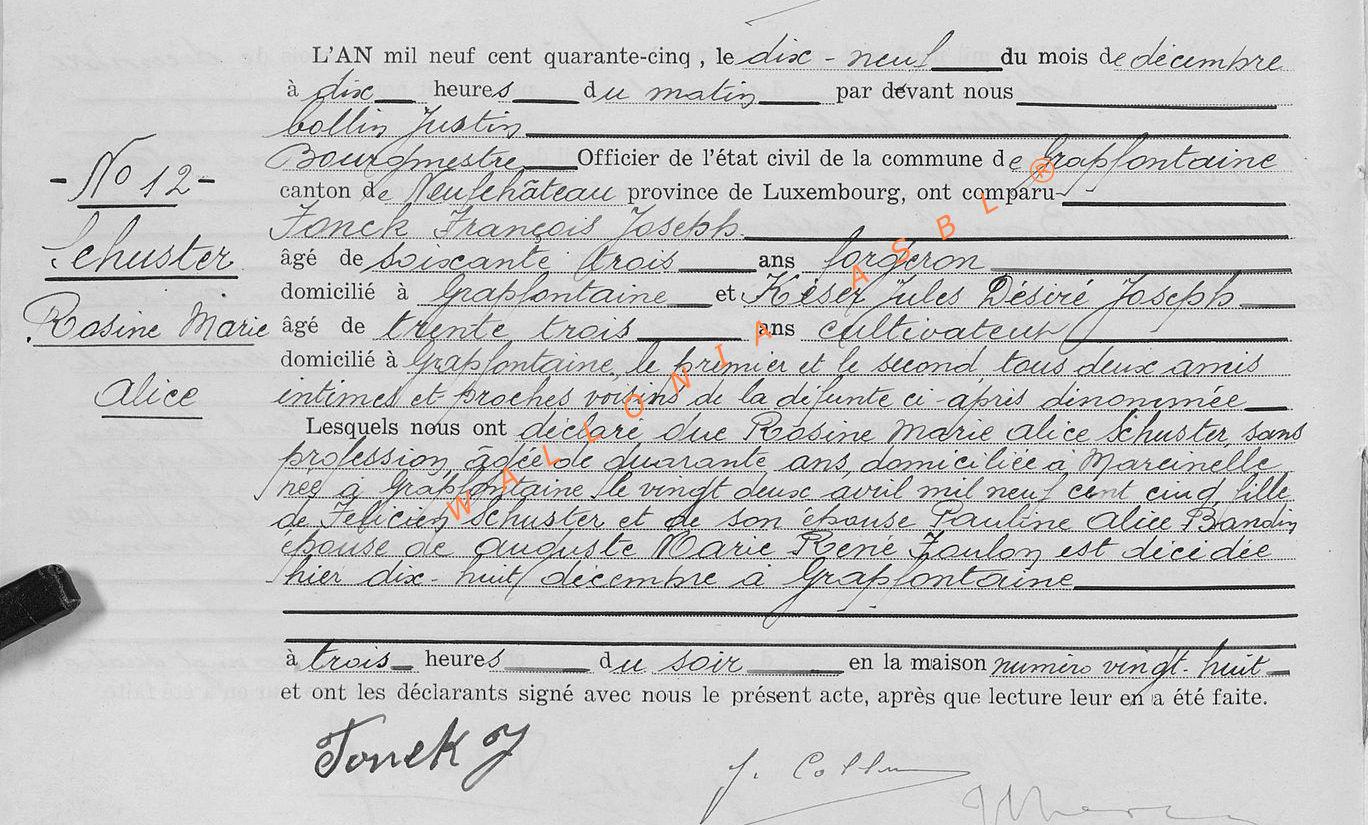 L'AN mil neuf cent quarante-cinq, le dix-neuf du mois de décembre
à dix heures du matin par devant nous
Collin Justin
Bourgmestre Officier de l'état civil de la commune de Grapfontaine
canton de Neufchâteau province de Luxembourg, ont comparu
Fonck François Joseph
âgé de soixante trois ans forgeron
domicilié à Grapfontaine et Késer Jules Désiré Joseph
âgé de trente trois ans cultivateur
domicilié à Grapfontaine, le premier et le second tous deux amis
intimes et proches voisins de la défunte ci-après dénommée
Lesquels nous ont déclaré que Rosine Marie Alice Schuster, sans
profession, âgée de quarante ans, domiciliée à Marcinelle
née à Grapfontaine le vingt deux avril mil neuf cent cinq fille
de Félicien Schuster et de son épouse Pauline Alice
épouse de Auguste Marie René est décédée
hier dix-huit décembre à Grapfontaine
à trois heures du soir en la maison numéro vingt-huit
et ont les déclarants signé avec nous le présent acte, après que lecture leur en a été faite.
Fonck J
J. Collin
-No 12-
Schuster
Rosine Marie
Alice
WALLONIA ASBL ®